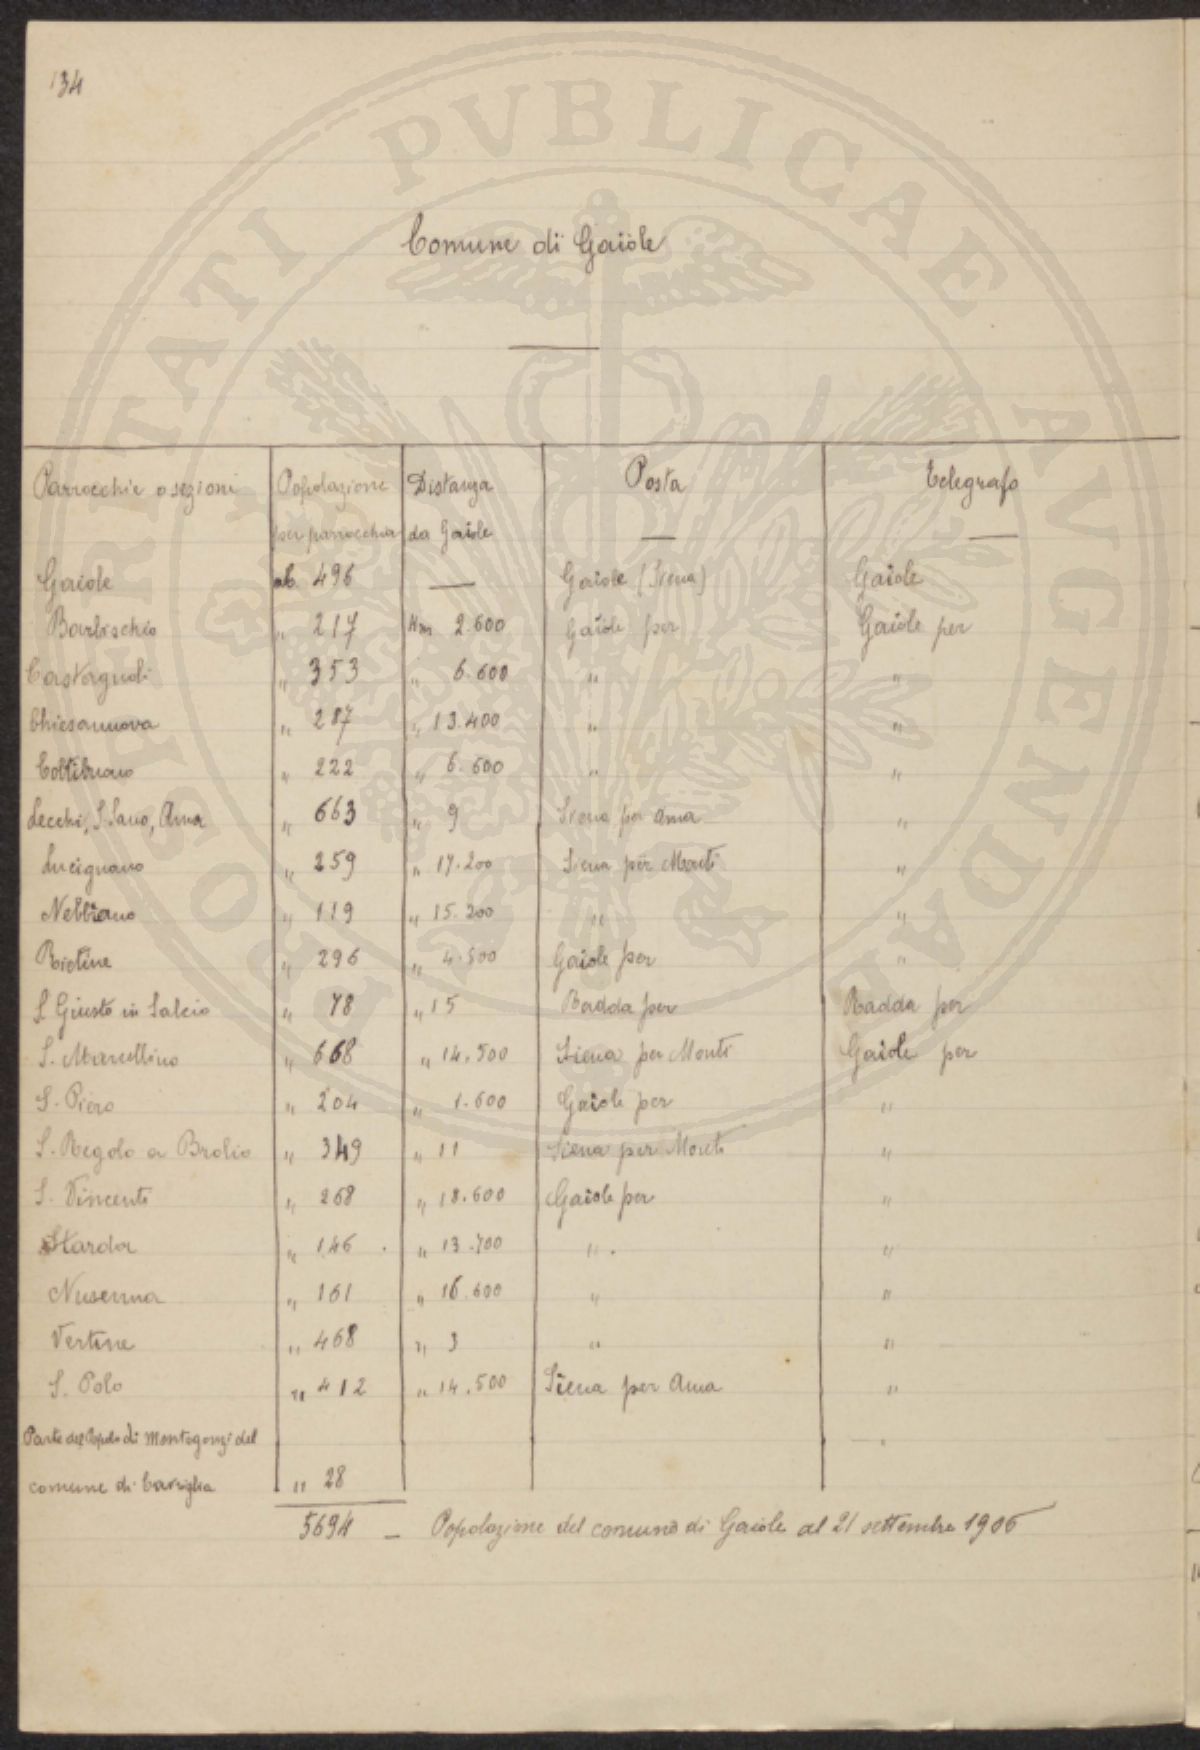 134
Comune di Gaiole
Parrocchie o sezioni Popolazione per parrocchia Distanza da Gaiole Posta Telegrafo
Gaiole ab. 496 — Gaiole (Siena) Gaiole
Barbischio " 217 Km 2.600 Gaiole per Gaiole per
Castagnoli " 353 " 6.600 " "
Chiesanuova " 287 " 13.400 " "
Coltibuono " 222 " 6.600 " "
Lecchi, S. Sano, Ama " 663 " 9 Siena per Ama "
Lucignano " 259 " 17.200 Siena per Monti "
Nebbiano " 119 " 15.200 " "
Rietine " 296 " 4.500 Gaiole per "
S. Giusto in Salcio " 78 " 15 Radda per Radda per
S. Marcellino " 668 " 14.500 Siena per Monti Gaiole per
S. Piero " 204 " 1.600 Gaiole per "
S. Regolo a Brolio " 349 " 11 Siena per Monti "
S. Vincenti " 268 " 18.600 Gaiole per "
Starda " 146 " 13.700 " "
Nusenna " 161 " 16.600 " "
Vertine " 468 " 3 " "
S. Polo " 412 " 14.500 Siena per Ama "
Parte del Popolo di Montegonzi del
comune di Cavriglia " 28
5694 — Popolazione del comune di Gaiole al 21 settembre 1906
PROSPERITATI PVBLICAE AVGENDAE